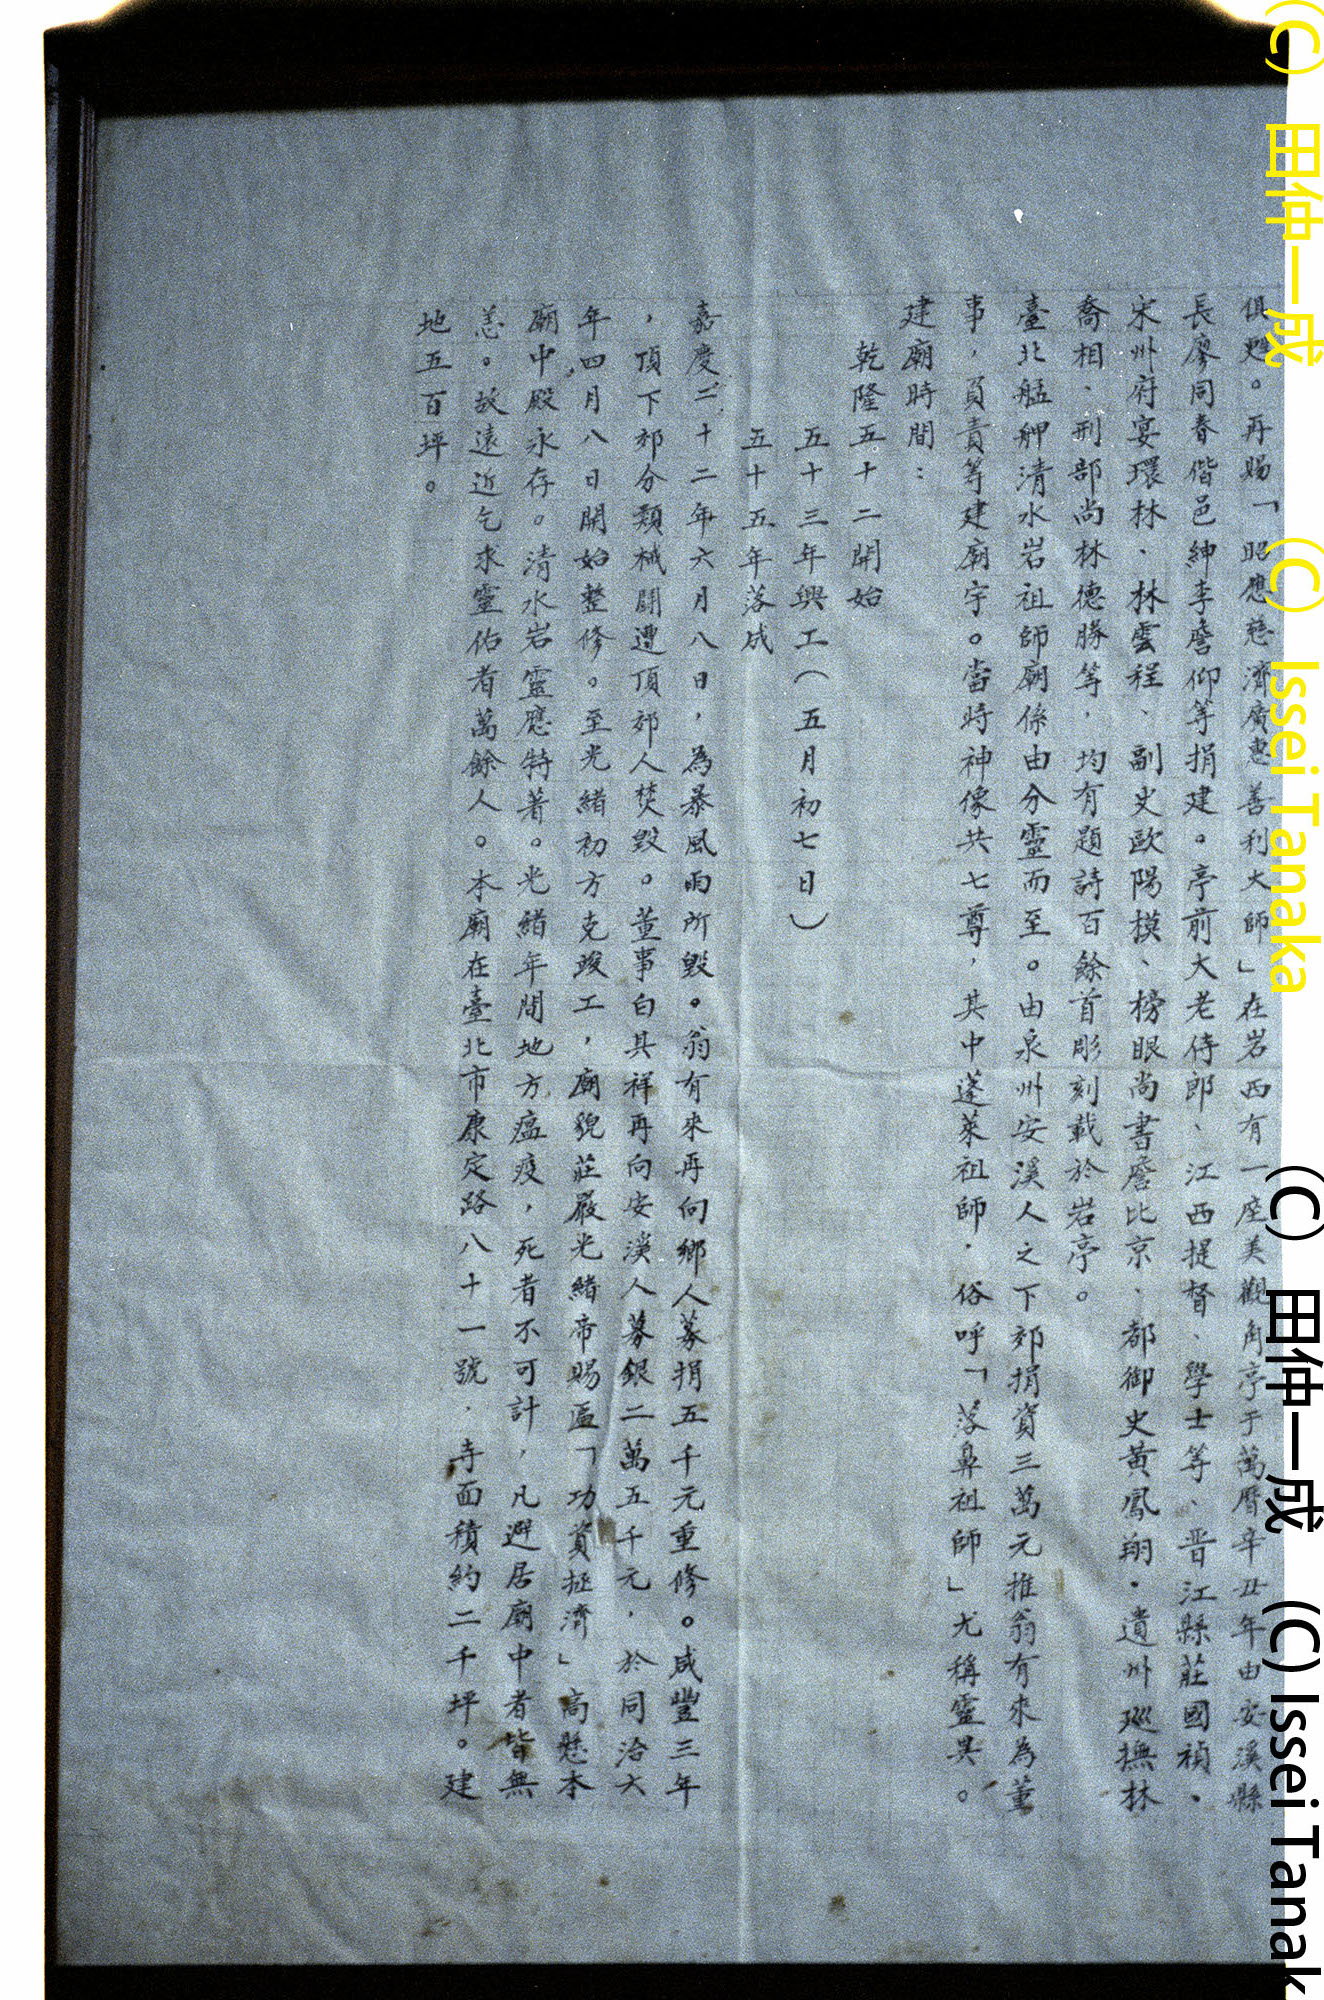 俱甦。再賜「昭應慈濟廣惠善利大師」在岩西有一座美觀角亭于萬曆辛丑年由安溪縣
長廖同春偕邑紳李詹仰等捐建。亭前大老侍郎、江西提督、學士等、晋江縣莊國禎、
宋州府宴環林、林雲程、副史歐陽模、榜眼尚書詹比京、都御史黃鳳翔、遺州巡撫林
喬相、刑部尚林德勝等，均有題詩百餘首彫刻載於岩亭。
臺北艋舺清水岩祖師廟係由分靈而至。由泉州安溪人之下郊捐資三萬元推翁有來為董
事，負責等建廟宇。當時神像共七尊，其中蓬萊祖師，俗呼「落鼻祖師」尤稱靈異。
建廟時間：
乾隆五十二開始
五十三年興工（五月初七日）
五十五年落成
嘉慶二十二年六月八日，為暴風雨所毀。翁有來再向鄉人募捐五千元重修。咸豐三年
，頂下郊分類械鬪遭頂郊人焚毀。董事白其祥再向安溪人募銀二萬五千元，於同治六
年四月八日開始整修。至光緒初方克竣工，廟貌莊嚴光緒帝賜匾「功資拯濟」高懸本
廟中殿永存。清水岩靈應特著。光緒年間地方瘟疫，死者不可計，凡避居廟中者皆無
恙。故遠近乞求靈佑者萬餘人。本廟在臺北市康定路八十一號．寺面積約二千坪。建
地五百坪。
(C) 田仲一成 (C) Issei Tanaka
(C) 田仲一成 (C) Issei Tanak